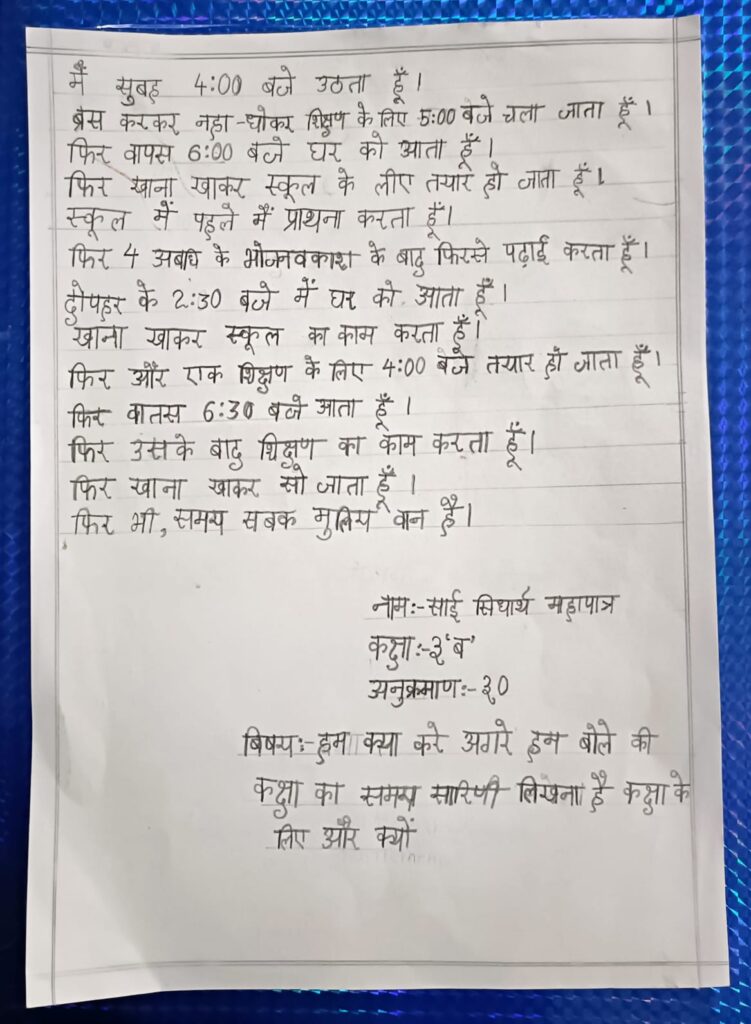 मैं सुबह 4:00 बजे उठता हूँ।
ब्रस करकर नहा-धोकर शिक्षण के लिए 5:00 बजे चला जाता हूँ।
फिर वापस 6:00 बजे घर को आता हूँ।
फिर खाना खाकर स्कूल के लीए तयार हो जाता हूँ।
स्कूल में पहले मैं प्राथना करता हूँ।
फिर 4 अबधि के भोजनवकाश के बाद फिरसे पढ़ाई करता हूँ।
दोपहर के 2:30 बजे में घर को आता हूँ।
खाना खाकर स्कूल का काम करता हूँ।
फिर और एक शिक्षण के लिए 4:00 बजे तयार हो जाता हूँ।
फिर वातस 6:30 बजे आता हूँ।
फिर उसके बाद शिक्षण का काम करता हूँ।
फिर खाना खाकर सो जाता हूँ।
फिर भी, समय सबक मुलिय वान है।
नाम:-साई सिधार्थ महापात्र
कक्षा:-३'ब'
अनुक्रमाण:-३०
बिषय:-हम क्या करे अगरे हम बोले की
कक्षा का समय सारिणी लिखना है कक्षा के
लिए और क्यों